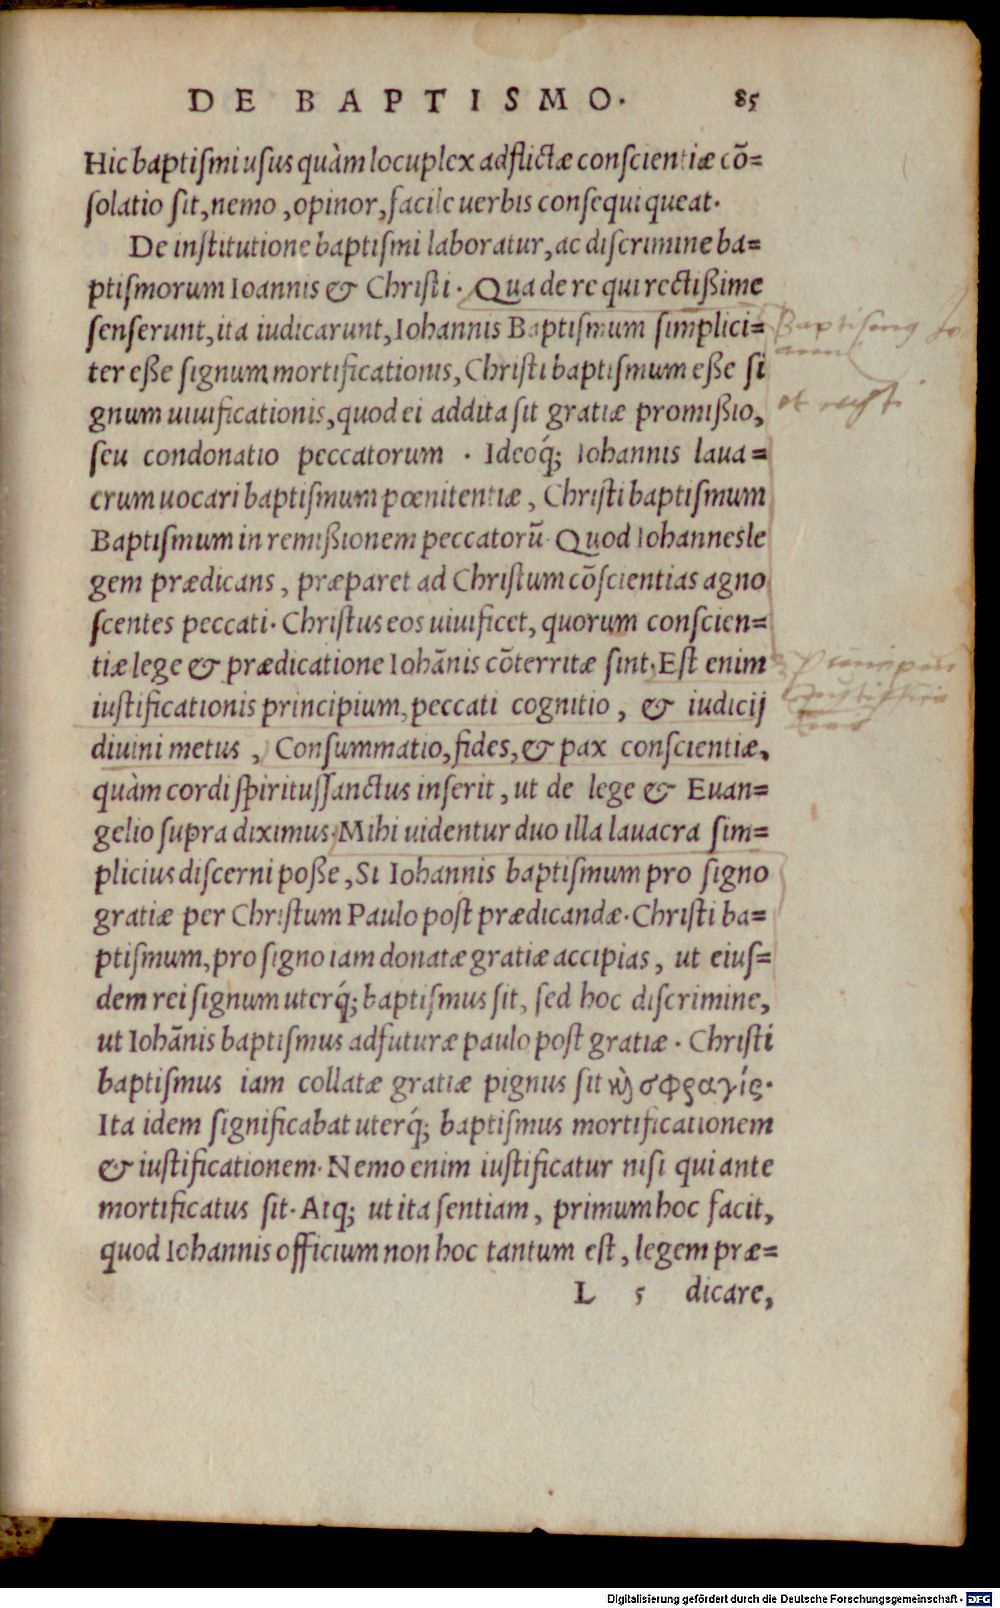 DE BAPTISMO. 85
Hic baptiſmi uſus quàm locuplex adflictæ conſcientiæ cō=
ſolatio ſit, nemo, opinor, facile uerbis conſequi queat.
De inſtitutione baptiſmi laboratur, ac diſcrimine ba=
ptiſmorum Ioannis & Chriſti. Qua de re qui rectißime
ſenſerunt, ita iudicarunt, Iohannis Baptiſmum ſimplici=
ter eße ſignum mortificationis, Chriſti baptiſmum eße ſi
gnum uiuificationis, quod ei addita ſit gratiæ promißio,
ſeu condonatio peccatorum . Ideoq́; Iohannis laua=
crum uocari baptiſmum pœnitentiæ, Chriſti baptiſmum
Baptiſmum in remißionem peccatorū. Quod Iohannes le
gem prædicans, præparet ad Chriſtum cōſcientias agno
ſcentes peccati. Chriſtus eos uiuificet, quorum conſcien=
tiæ lege & prædicatione Iohānis cōterritæ ſint. Eſt enim
iuſtificationis principium, peccati cognitio, & iudicij
diuini metus, Conſummatio, fides, & pax conſcientiæ,
quàm cordi ſpiritus ſanctus inſerit, ut de lege & Euan=
gelio ſupra diximus. Mihi uidentur duo illa lauacra ſim=
plicius diſcerni poße, Si Iohannis baptiſmum pro ſigno
gratiæ per Chriſtum Paulo poſt prædicandæ. Chriſti ba=
ptiſmum, pro ſigno iam donatæ gratiæ accipias, ut eiuſ=
dem rei ſignum uterq́; baptiſmus ſit, ſed hoc diſcrimine,
ut Iohānis baptiſmus ad futuræ paulo poſt gratiæ. Chriſti
baptiſmus iam collatæ gratiæ pignus ſit ϗ̀ σφραγίς.
Ita idem ſignificabat uterq́; baptiſmus mortificationem
& iuſtificationem. Nemo enim iuſtificatur niſi qui ante
mortificatus ſit. Atq; ut ita ſentiam, primum hoc facit,
quod Iohannis officium non hoc tantum eſt, legem præ=
L 5 dicare,
Digitalisierung gefördert durch die Deutsche Forschungsgemeinschaft - DFG